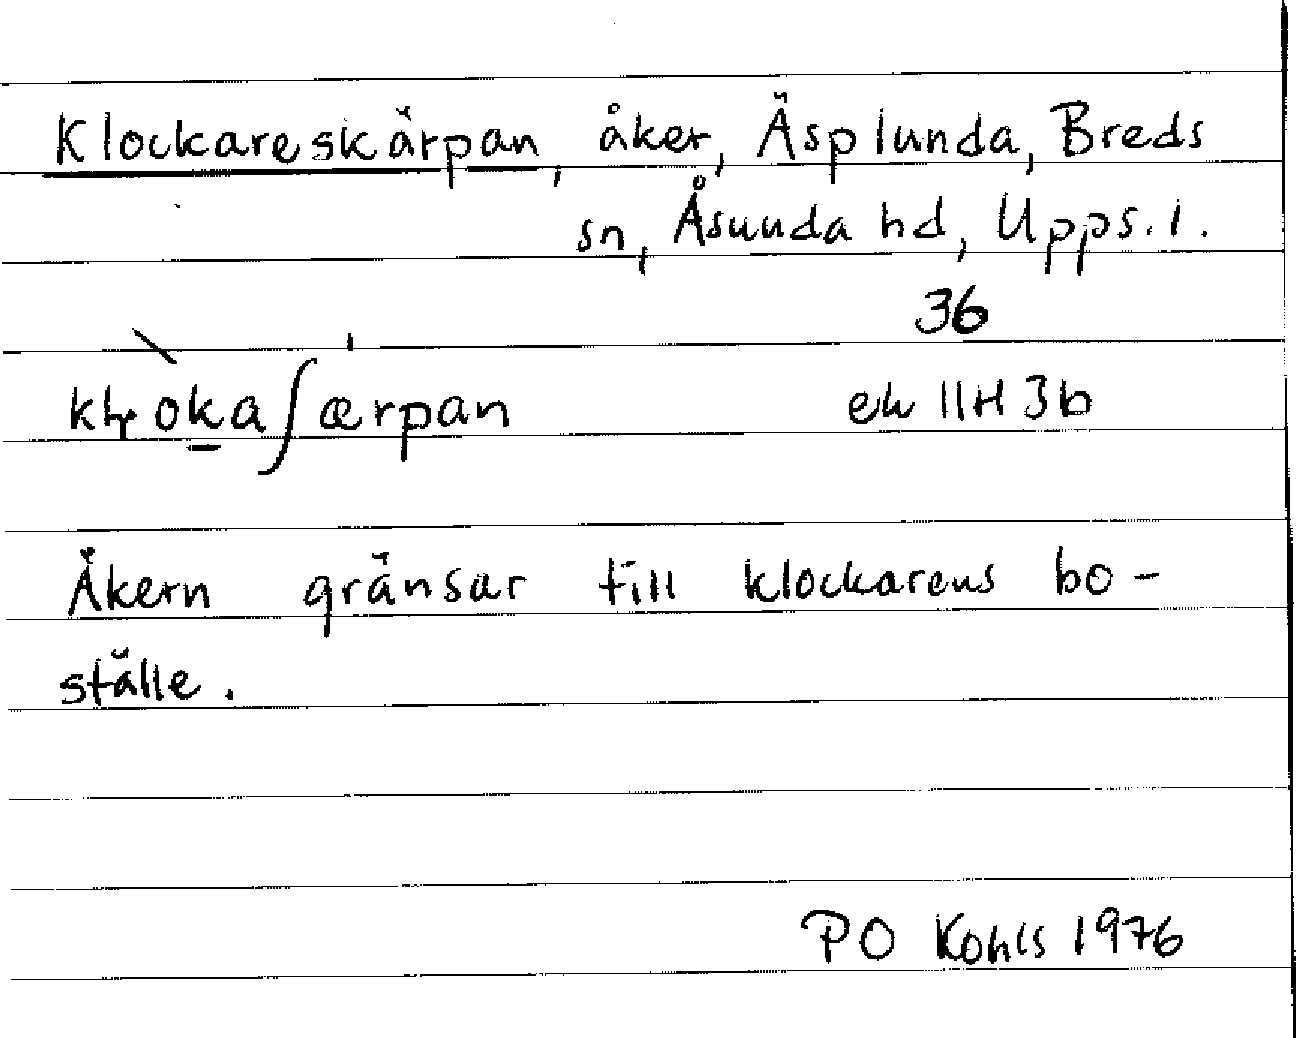 Klockareskärpan, åker, Äsplunda, Breds
sn, Åsunda hd, Upps. l.
36
ek 11H 3b
Åkern gränsar till klockarens bo-
ställe.
PO Kohls 1976